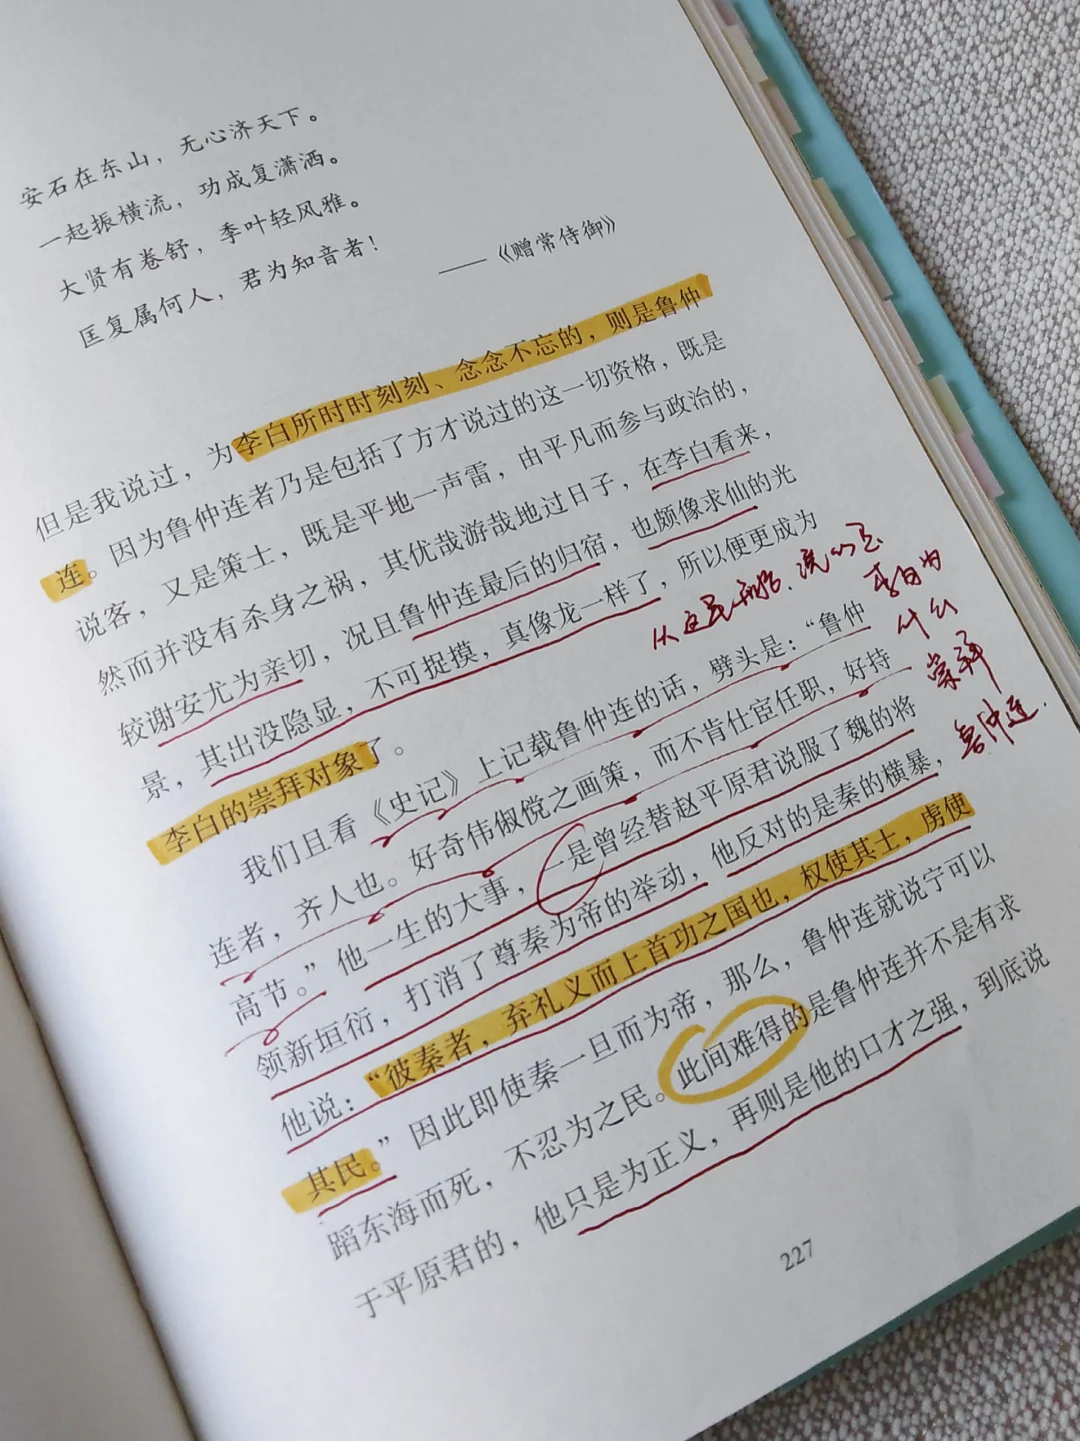 安石在东山，无心济天下。
一起振横流，功成复潇洒。
大贤有卷舒，季叶轻风雅。
匡复属何人，君为知音者！
——《赠常侍御》
但是我说过，为李白所时时刻刻、念念不忘的，则是鲁仲
连。因为鲁仲连者乃是包括了方才说过的这一切资格，既是
说客，又是策士，既是平地一声雷，由平凡而参与政治的，
然而并没有杀身之祸，其优哉游哉地过日子，在李白看来，
较谢安尤为亲切，况且鲁仲连最后的归宿，也颇像求仙的光
景，其出没隐显，不可捉摸，真像龙一样了，所以便更成为
李白的崇拜对象了。
我们且看《史记》上记载鲁仲连的话，劈头是：“鲁仲
连者，齐人也。好奇伟俶傥之画策，而不肯仕宦任职，好持
高节。”他一生的大事，一是曾经替赵平原君说服了魏的将
领新垣衍，打消了尊秦为帝的举动，他反对的是秦的横暴，
他说：“彼秦者，弃礼义而上首功之国也，权使其士，虏使
其民。”因此即使秦一旦而为帝，那么，鲁仲连就说宁可以
蹈东海而死，不忍为之民。此间难得的是鲁仲连并不是有求
于平原君的，他只是为正义，再则是他的口才之强，到底说
从这里 说的是
李白为
什么
崇拜
鲁仲连.
227